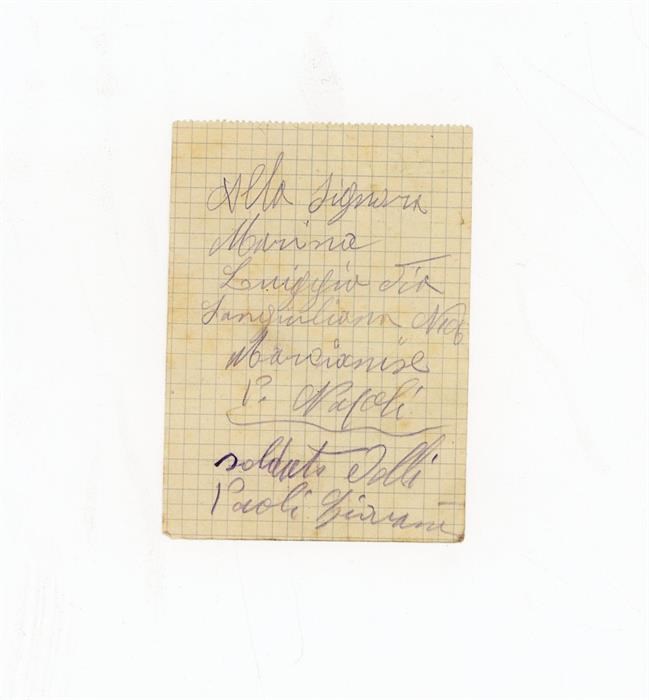 Alla Signora
Marina
Luiggia Via
Sangiuliana N
Marcianise
P. Napoli
soldato Delli
Paoli Giovani